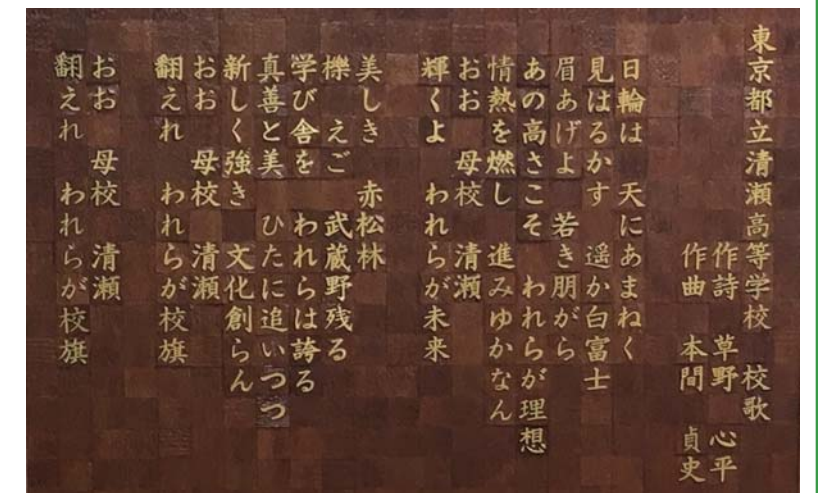 東京都立清瀬高等学校 校歌
作詩 草野 心平
作曲 本間 貞史
日輪は 天にあまねく
見はるかす 遥か白富士
眉あげよ 若き朋がら
あの高さこそ われらが理想
情熱を燃し 進みゆかなん
おお 母校 清瀬
輝くよ われらが未来
美しき 赤松林
欅 えご 武蔵野残る
学び舎を われらは誇る
真善と美 ひたに追いつつ
新しく強き 文化創らん
おお 母校 清瀬
翻えれ われらが校旗
おお 母校 清瀬
翻えれ われらが校旗